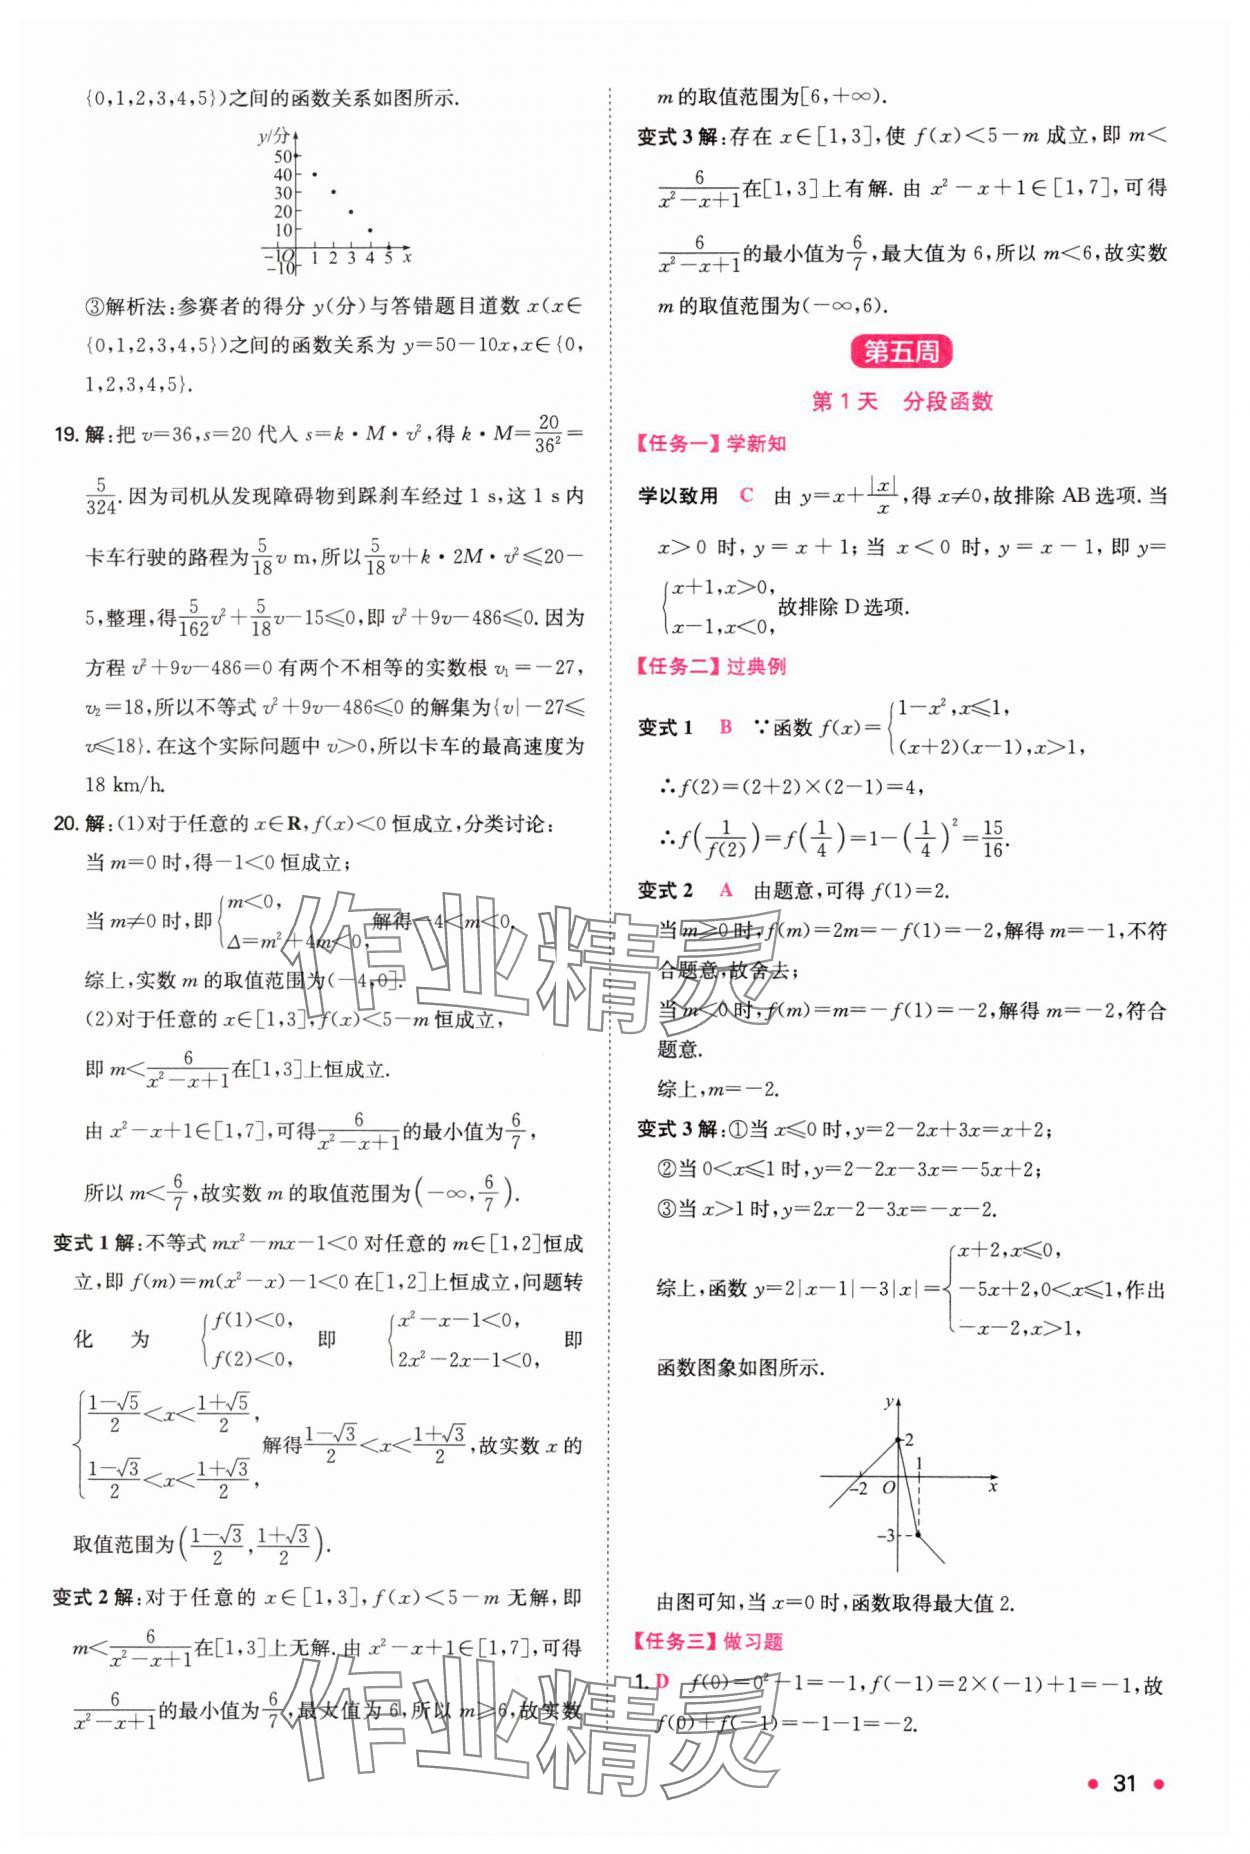 {0,1,2,3,4,5})之间的函数关系如图所示.
y/分
50
40
30
20
10
-1 O 1 2 3 4 5 x
-10
③解析法:参赛者的得分 y(分)与答错题目道数 x(x∈
{0,1,2,3,4,5})之间的函数关系为 y=50-10x,x∈{0,
1,2,3,4,5}.
19. 解:把 v=36,s=20 代入 s=k·M·v²,得 k·M=20/36²=
5/324. 因为司机从发现障碍物到踩刹车经过 1 s,这 1 s 内
卡车行驶的路程为5/18 v m,所以5/18 v+k·2M·v²≤20-
5,整理,得5/162 v²+5/18 v-15≤0,即 v²+9v-486≤0. 因为
方程 v²+9v-486=0 有两个不相等的实数根 v₁=-27,
v₂=18,所以不等式 v²+9v-486≤0 的解集为{v|-27≤
v≤18}. 在这个实际问题中 v>0,所以卡车的最高速度为
18 km/h.
20. 解:(1)对于任意的 x∈R,f(x)<0 恒成立,分类讨论:
当 m=0 时,得-1<0 恒成立;
当 m≠0 时,即{m<0, Δ=m²+4m<0, 解得-4<m<0.
综上,实数 m 的取值范围为(-4,0].
(2)对于任意的 x∈[1,3],f(x)<5-m 恒成立,
即 m<6/(x²-x+1)在[1,3]上恒成立.
由 x²-x+1∈[1,7],可得6/(x²-x+1)的最小值为6/7,
所以 m<6/7,故实数 m 的取值范围为(-∞,6/7).
变式 1 解:不等式 mx²-mx-1<0 对任意的 m∈[1,2]恒成
立,即 f(m)=m(x²-x)-1<0 在[1,2]上恒成立,问题转
化为{f(1)<0, f(2)<0, 即{x²-x-1<0, 2x²-2x-1<0, 即
{(1-√5)/2<x<(1+√5)/2, (1-√3)/2<x<(1+√3)/2, 解得(1-√3)/2<x<(1+√3)/2,故实数 x 的
取值范围为((1-√3)/2,(1+√3)/2).
变式 2 解:对于任意的 x∈[1,3],f(x)<5-m 无解,即
m<6/(x²-x+1)在[1,3]上无解. 由 x²-x+1∈[1,7],可得
6/(x²-x+1)的最小值为6/7,最大值为 6,所以 m≥6,故实数
m 的取值范围为[6,+∞).
变式 3 解:存在 x∈[1,3],使 f(x)<5-m 成立,即 m<
6/(x²-x+1)在[1,3]上有解. 由 x²-x+1∈[1,7],可得
6/(x²-x+1)的最小值为6/7,最大值为 6,所以 m<6,故实数
m 的取值范围为(-∞,6).
第五周
第 1 天 分段函数
【任务一】学新知
学以致用 C 由 y=x+|x|/x,得 x≠0,故排除 AB 选项. 当
x>0 时,y=x+1;当 x<0 时,y=x-1,即 y=
{x+1,x>0, x-1,x<0, 故排除 D 选项.
【任务二】过典例
变式 1 B ∵函数 f(x)={1-x²,x≤1, (x+2)(x-1),x>1,
∴f(2)=(2+2)×(2-1)=4,
∴f(1/f(2))=f(1/4)=1-(1/4)²=15/16.
变式 2 A 由题意,可得 f(1)=2.
当 m≥0 时,f(m)=2m=-f(1)=-2,解得 m=-1,不符
合题意,故舍去;
当 m<0 时,f(m)=m=-f(1)=-2,解得 m=-2,符合
题意.
综上,m=-2.
变式 3 解:①当 x≤0 时,y=2-2x+3x=x+2;
②当 0<x≤1 时,y=2-2x-3x=-5x+2;
③当 x>1 时,y=2x-2-3x=-x-2.
综上,函数 y=2|x-1|-3|x|={x+2,x≤0, -5x+2,0<x≤1, -x-2,x>1, 作出
函数图象如图所示.
y
2
1
-2 O x
-3
由图可知,当 x=0 时,函数取得最大值 2.
【任务三】做习题
1. D f(0)=0²-1=-1,f(-1)=2×(-1)+1=-1,故
f(0)+f(-1)=-1-1=-2.
作业精灵
作业精灵
31